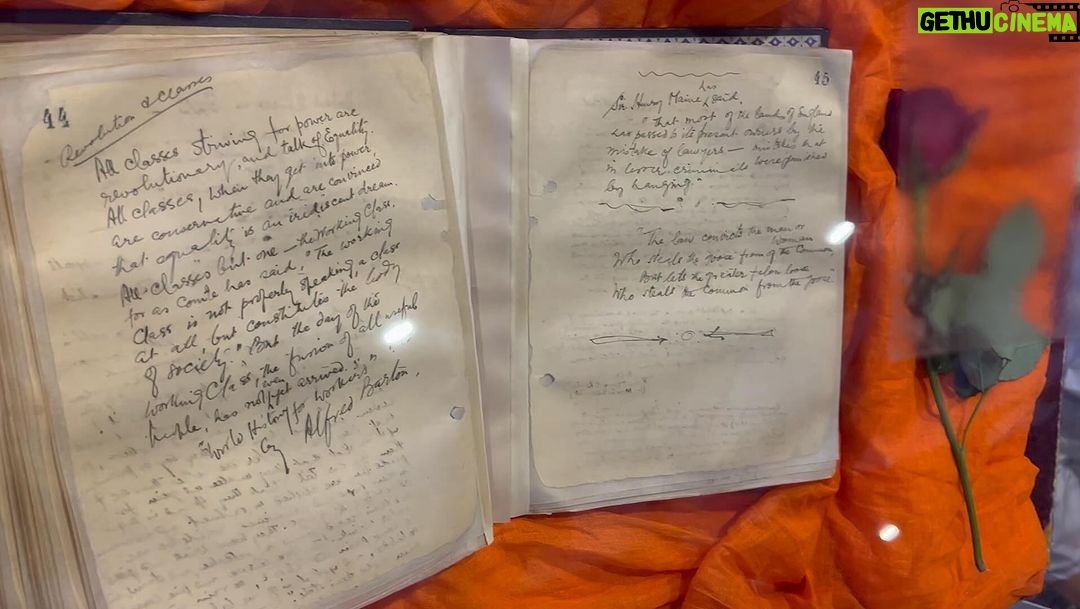 GETHUCINEMA
44
Revolution & Classes
All classes striving for power are
revolutionary, and talk of Equality.
All classes, when they get into power
are conservative and are convinced
that equality is an iridiscent dream.
All classes but one – the Working Class,
for as Comte has said, "The working
class is not properly speaking a class
at all, but constitutes the body
of society." But the day of the
Working Class, the fusion of all useful
people, has not yet even arrived."
"World History for workers"
by Alfred Barton.
45
Sir Henry Maine has said,
"That most of the land of England
has passed to its present owners by the
mistake of lawyers – mistakes that
in lesser criminals were punished
by hanging."
"The law convicts the man or woman
Who steals the goose from off the Common,
But lets the greater felon loose
Who steals the Common from the goose."